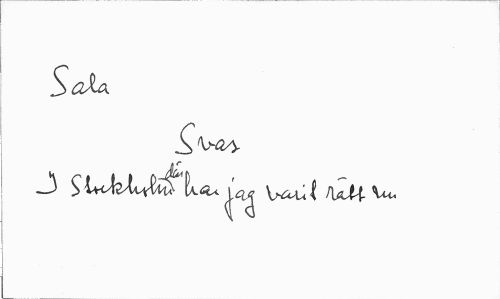 Sala
Svar
I Stockholm där har jag varit rätt nu